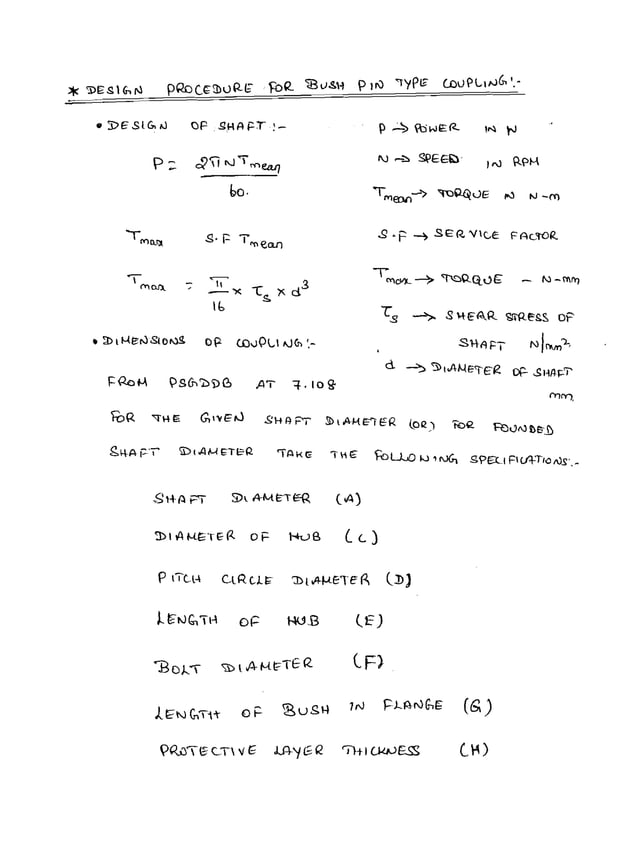 * DESIGN PROCEDURE FOR BUSH PIN TYPE COUPLING:-
• DESIGN OF SHAFT:-
P = 2πNTmean / 60.
Tmax S.F Tmean
Tmax = π/16 × τs × d³
P → POWER IN W
N → SPEED IN RPM
Tmean → TORQUE IN N-m
S.F → SERVICE FACTOR
Tmax → TORQUE - N-mm
τs → SHEAR STRESS OF
SHAFT N/mm²
d → DIAMETER OF SHAFT
mm
• DIMENSIONS OF COUPLING:-
FROM PSGDDB AT 7.108
FOR THE GIVEN SHAFT DIAMETER (OR) FOR FOUNDED
SHAFT DIAMETER TAKE THE FOLLOWING SPECIFICATIONS:-
SHAFT DIAMETER (A)
DIAMETER OF HUB (C)
PITCH CIRCLE DIAMETER (D)
LENGTH OF HUB (E)
BOLT DIAMETER (F)
LENGTH OF BUSH IN FLANGE (G)
PROTECTIVE LAYER THICKNESS (H)